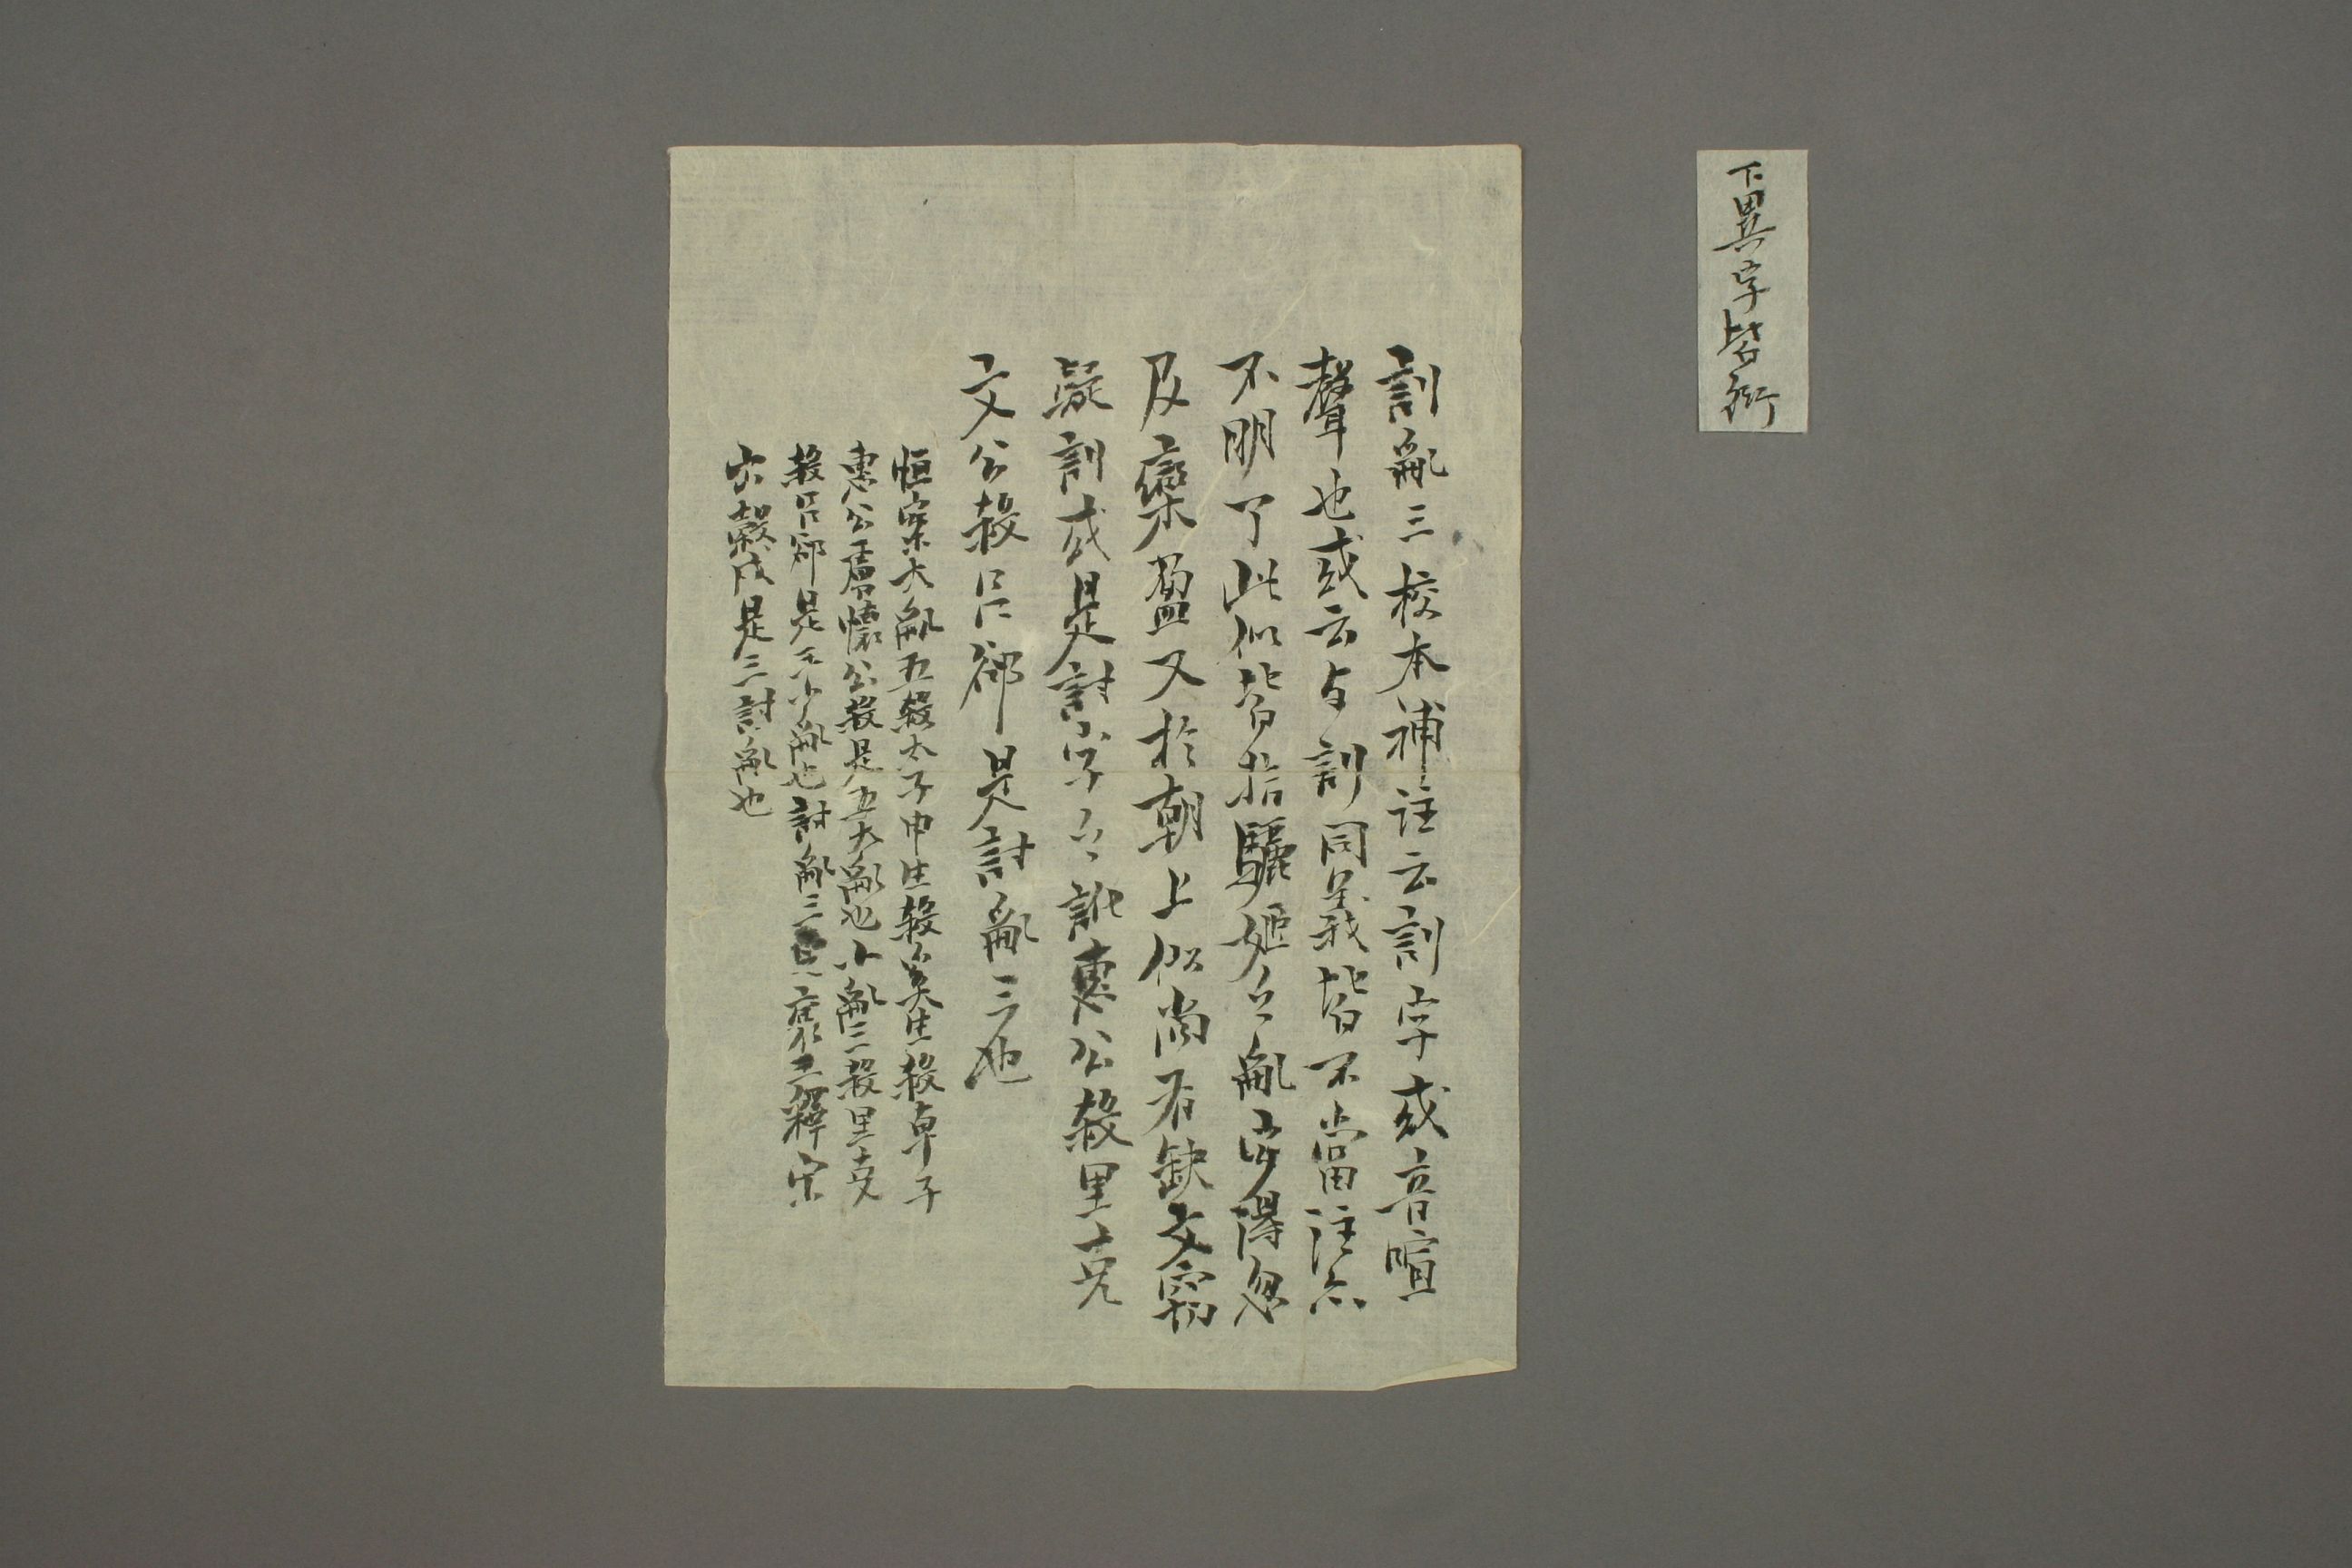 下異字皆衍
訇亂三校本補註云訇字或音喧
聲也或云与訇同義皆不當註亦
不明了此似皆指驪姬之亂安得忽
及欒盈又於朝上似尚有缺文竊
疑訇或是討字之訛惠公殺里克
文公殺呂郤是討亂三也
恒案大亂五殺太子申生殺奚生殺卓子
惠公虜懷公殺是五大亂也小亂三殺里克
殺呂郤是三小亂也討亂三襄王釋宋
六穀戍是三討亂也